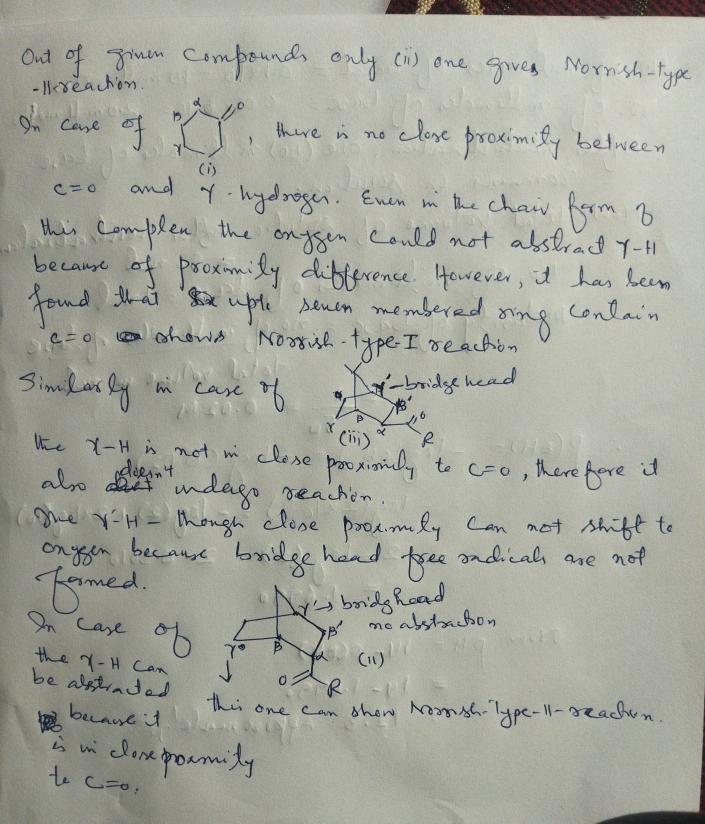 Out of given compounds only (ii) one gives Norrish-type
-II reaction.
In case of α β γ O (i), there is no close proximity between
c=o and γ-hydrogen. Even in the chair form of
this complex the oxygen could not abstract γ-H
because of proximity difference. However, it has been
found that upto seven membered ring contain
c=o shows Norrish-type-I reaction
Similarly in case of γ'-bridge head β' γ β α O R (iii)
the γ-H is not in close proximity to c=o, therefore it
also doesn't undergo reaction.
The γ'-H - though close proximity can not shift to
oxygen because bridge head free radicals are not
formed.
In case of γ' → bridg head
no abstraction
β' γ β α (ii) O R
the γ-H can
be abstracted
because it
is in close poxmity
to c=o.
this one can show Norrish-Type-II-reaction.